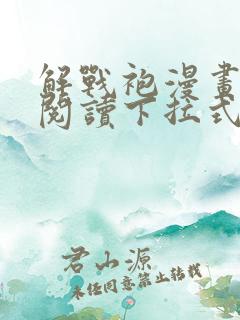 解戰袍漫畫
閱讀下拉式
君山源
未经同意禁止转载